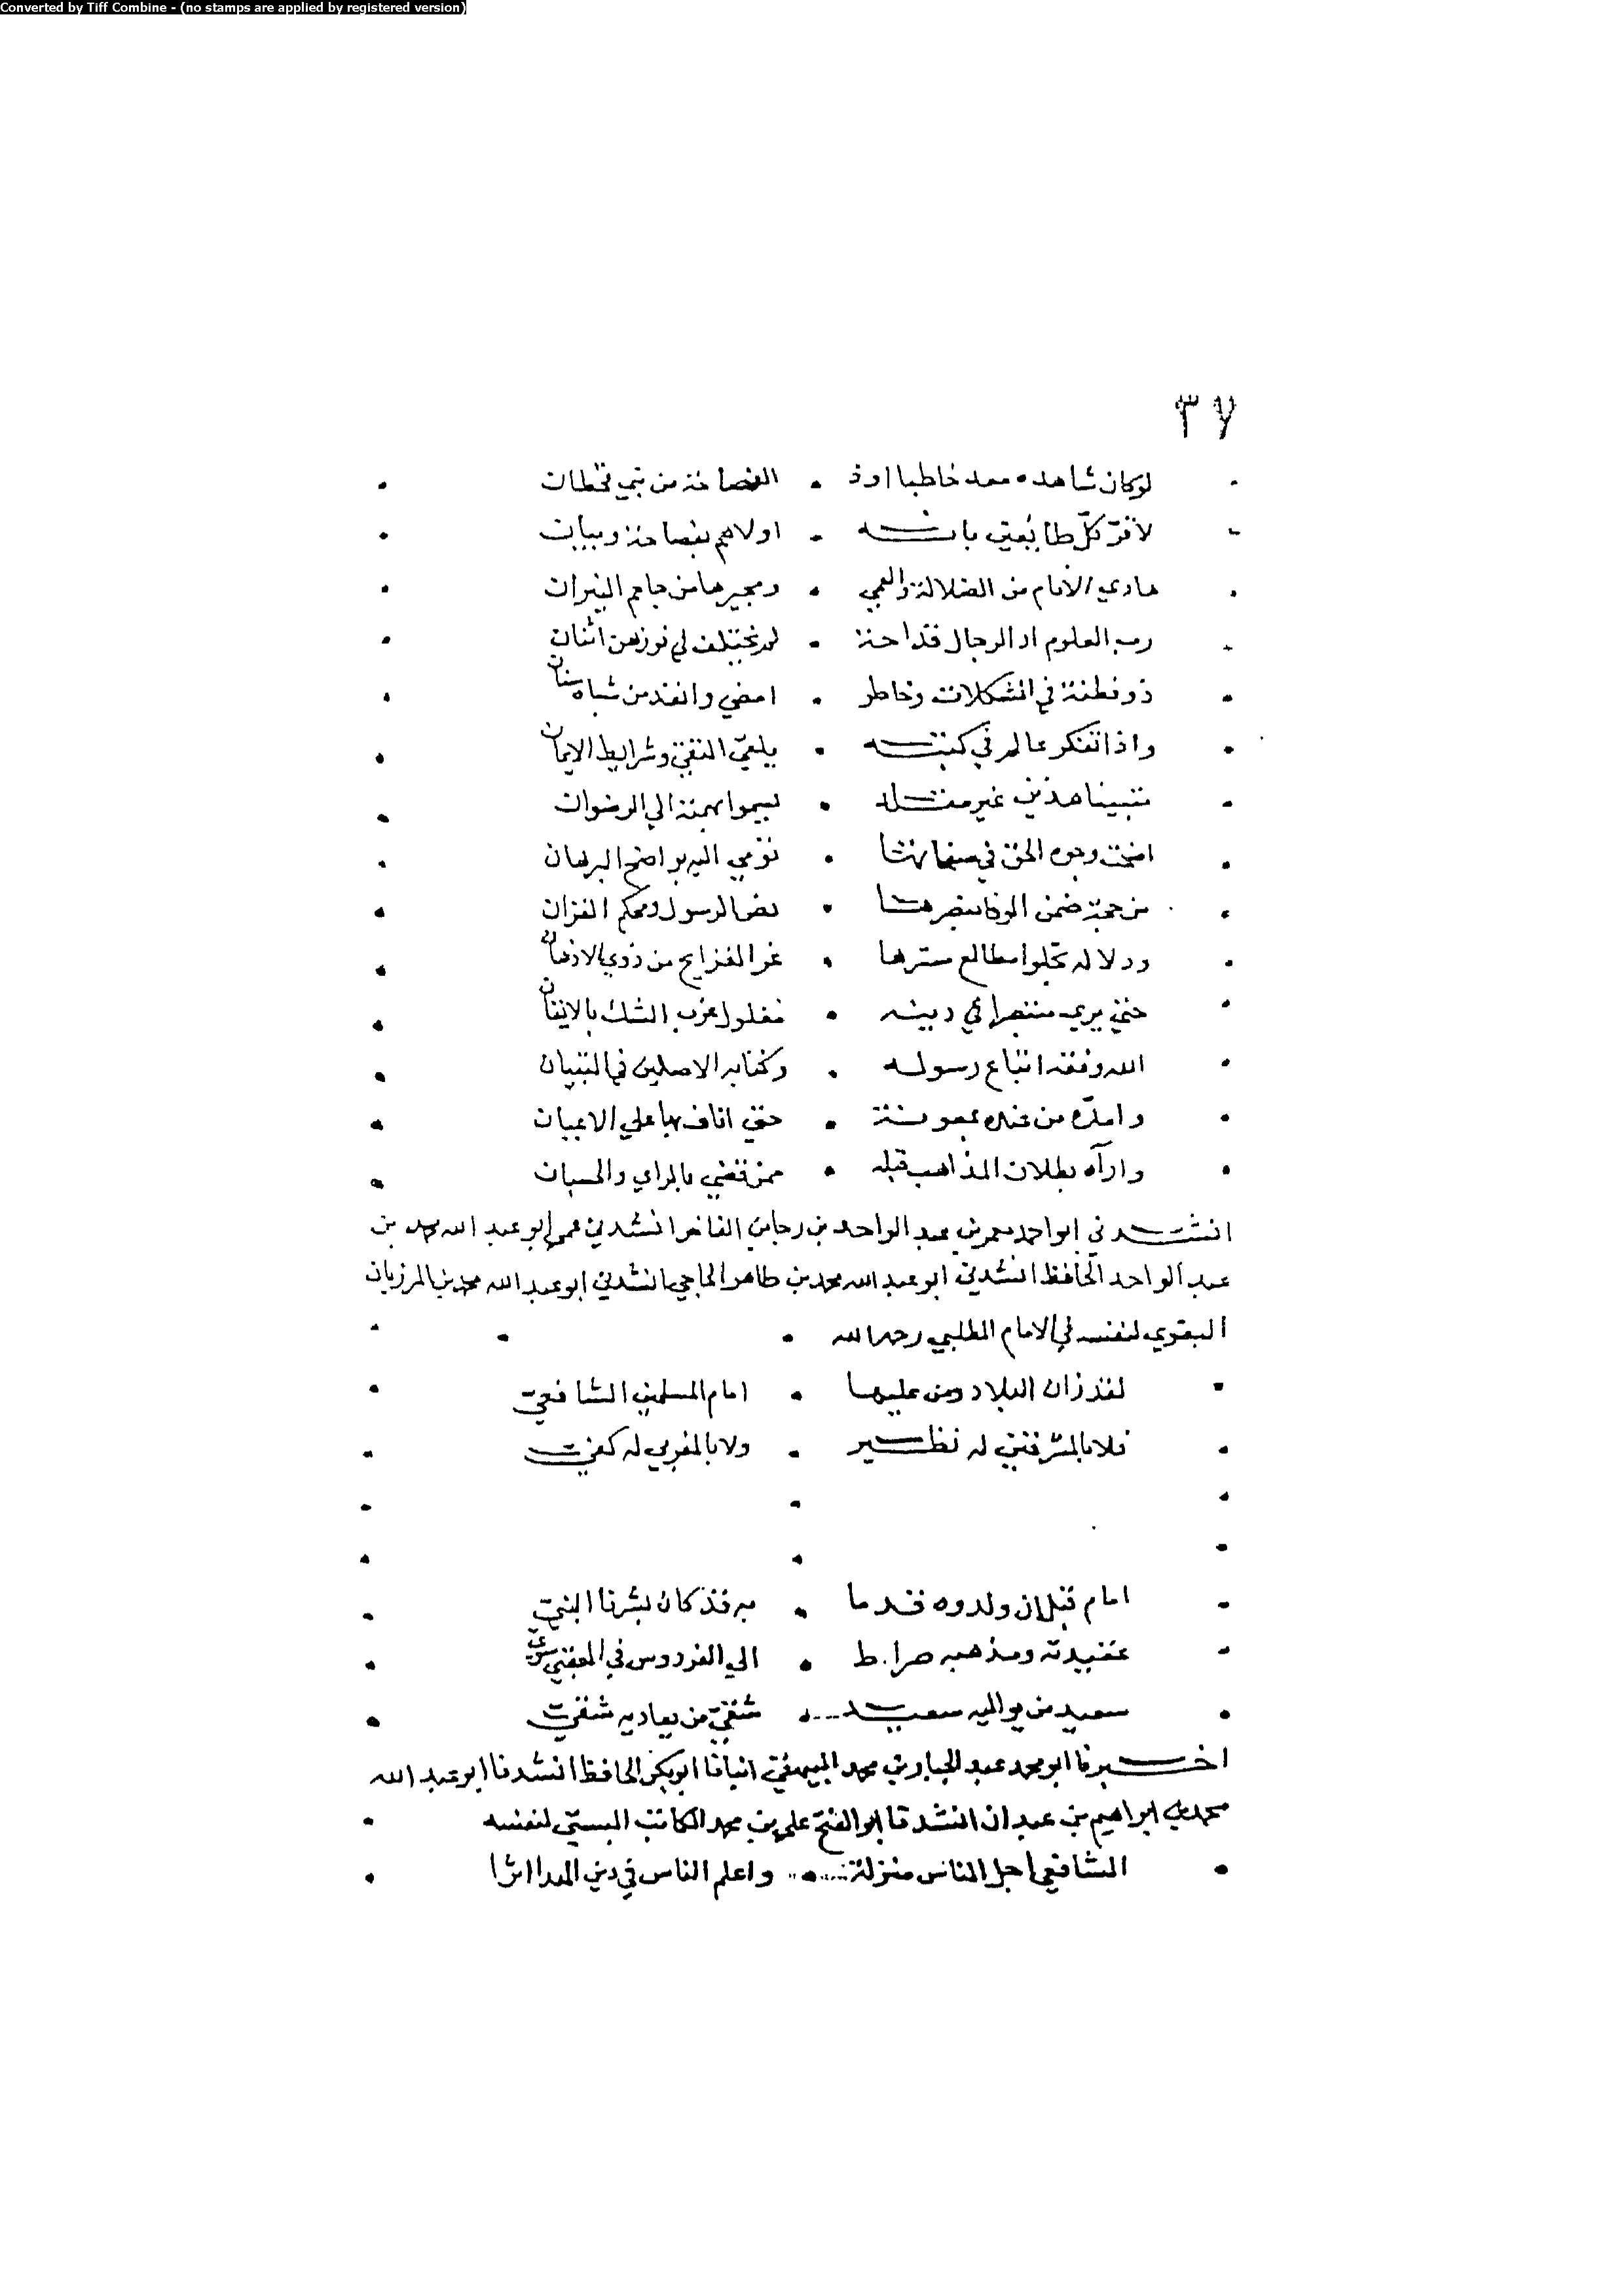 Converted by Tiff Combine - (no stamps are applied by registered version)
٣٧
لو كان شاهده معد خاطبا او ذ الفصاحة من بني قحطان
لاقر كلّ طايعين بانه اولاهم بفصاحة وبيان
هادي الانام من الضلالة والعمي ومجيرها من جاحم النيران
رب العلوم اد الرجال قداحة لم تختلف في فوزهن اثنان
ذو فطنة في المشكلات وخاطر امضي وانفذ من شباه سنان
واذا تفكر عالم في كتبه يلقي التقي وشرايط الايمان
متبينا هذين غير مقلد يسموا بهمته الي الرضوان
اضحت وجوه الحق في صفحاتها تؤمي اليه بواضح البرهان
من حجة ضمن الوفا بنصرها نص الرسول ومحكم القران
ودلاله تجلوا مطالع سترها غر القرايح من ذوي الاذهان
حتي يري متبصرا في دينه مفلول عرب الشك بالايقان
الله وفقه اتباع رسوله وكتابه الاصلين في التبيان
وامدّه من عنده بمعونة حتي اناف بها علي الاعيان
وارآه بطلان المذاهب قبله ممن قضي بالراي والحسبان
انشدني ابو احمد معمر بن عبد الواحد بن رجا بن الفاخر انشدني عمي ابو عبد الله محمد بن
عبد الواحد الحافظ انشدني ابو عبد الله محمد بن طاهر انشدني ابو عبد الله محمد بن المرزبان
لنفسه في الامام المطلبي رحمه الله
لقد زان البلاد ومن عليها امام المسلمين الشافعيّ
فلا بالمشرقين له نظير ولا بالمغربين له كفيّ
امام قبل ان ولدوه قدما به قد كان بشرنا النبيّ
عقيدته ومذهبه صراط الي الفردوس في العقبي سويّ
سعيد من يواليه سعيد شقيّ من يعاديه شقيّ
اخبرنا ابو محمد عبد الجبار بن محمد البيهقي انبانا ابو بكر الحافظ انشدنا ابو عبد الله
محمد بن ابراهيم بن عبدان انشدنا ابو الفتح علي بن محمد الكاتب البستي لنفسه
الشافعي اجل الناس منزلة واعلم الناس في دين الهدا اثرا